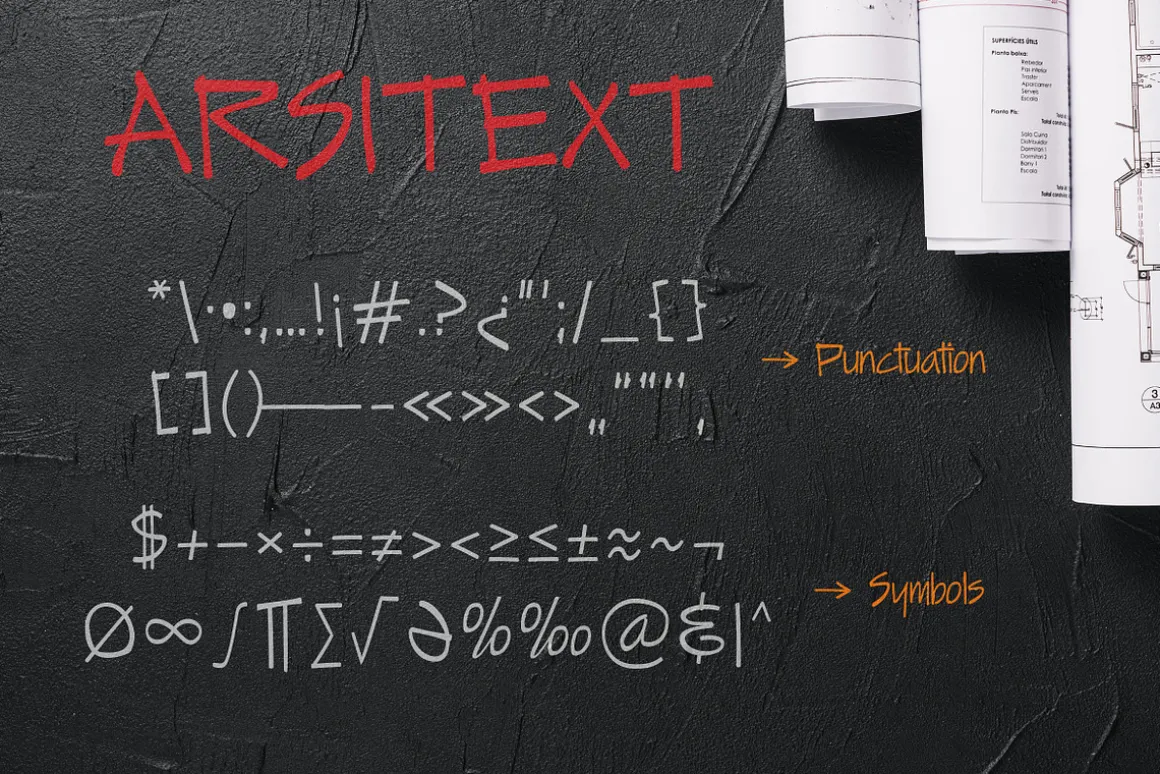 ARSITEXT
SUPERFÍCIES ÚTILS
Planta baixa:
Rebedor
Pas interior
Traster
Aparcament
Serveis
Escala
Planta Pis:
Sala Cuina
Distribuidor
Dormitori 1
Dormitori 2
Bany 1
Escala
*\·•:,…!¡#.?¿"';/_{}
→ Punctuation
[]()—–-«»‹›„“”‘’‚
$+−×÷=≠><≥≤±≈~¬
→ Symbols
Ø∞∫∏∑√∂%‰@&|^
3
A3